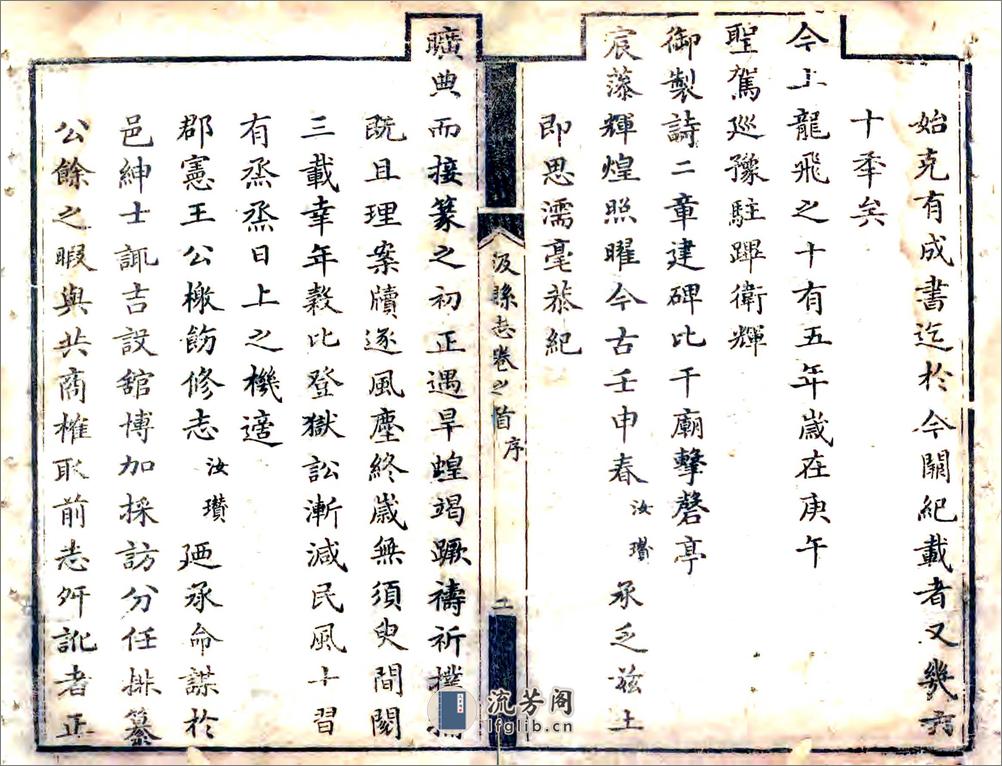 始克有成書迄於今闕紀載者又幾六
十年矣
今上龍飛之十有五年歲在庚午
聖駕巡豫駐蹕衛輝
御製詩二章建碑比干廟擊磬亭
宸藻輝煌照曜今古壬申春汝瓚承乏茲土
即思濡毫恭紀
汲縣志卷之首 序
二
曠典而接篆之初正遇旱蝗竭蹶禱祈撲
既且理案牘逐風塵終歲無須臾間閱
三載幸年穀比登獄訟漸減民風士習
有烝烝日上之機適
郡憲王公檄飭修志汝瓚廼承命謀於
邑紳士諏吉設舘博加採訪分任排纂
公餘之暇與共商榷取前志舛訛者正
流芳阁
lfglib.cn